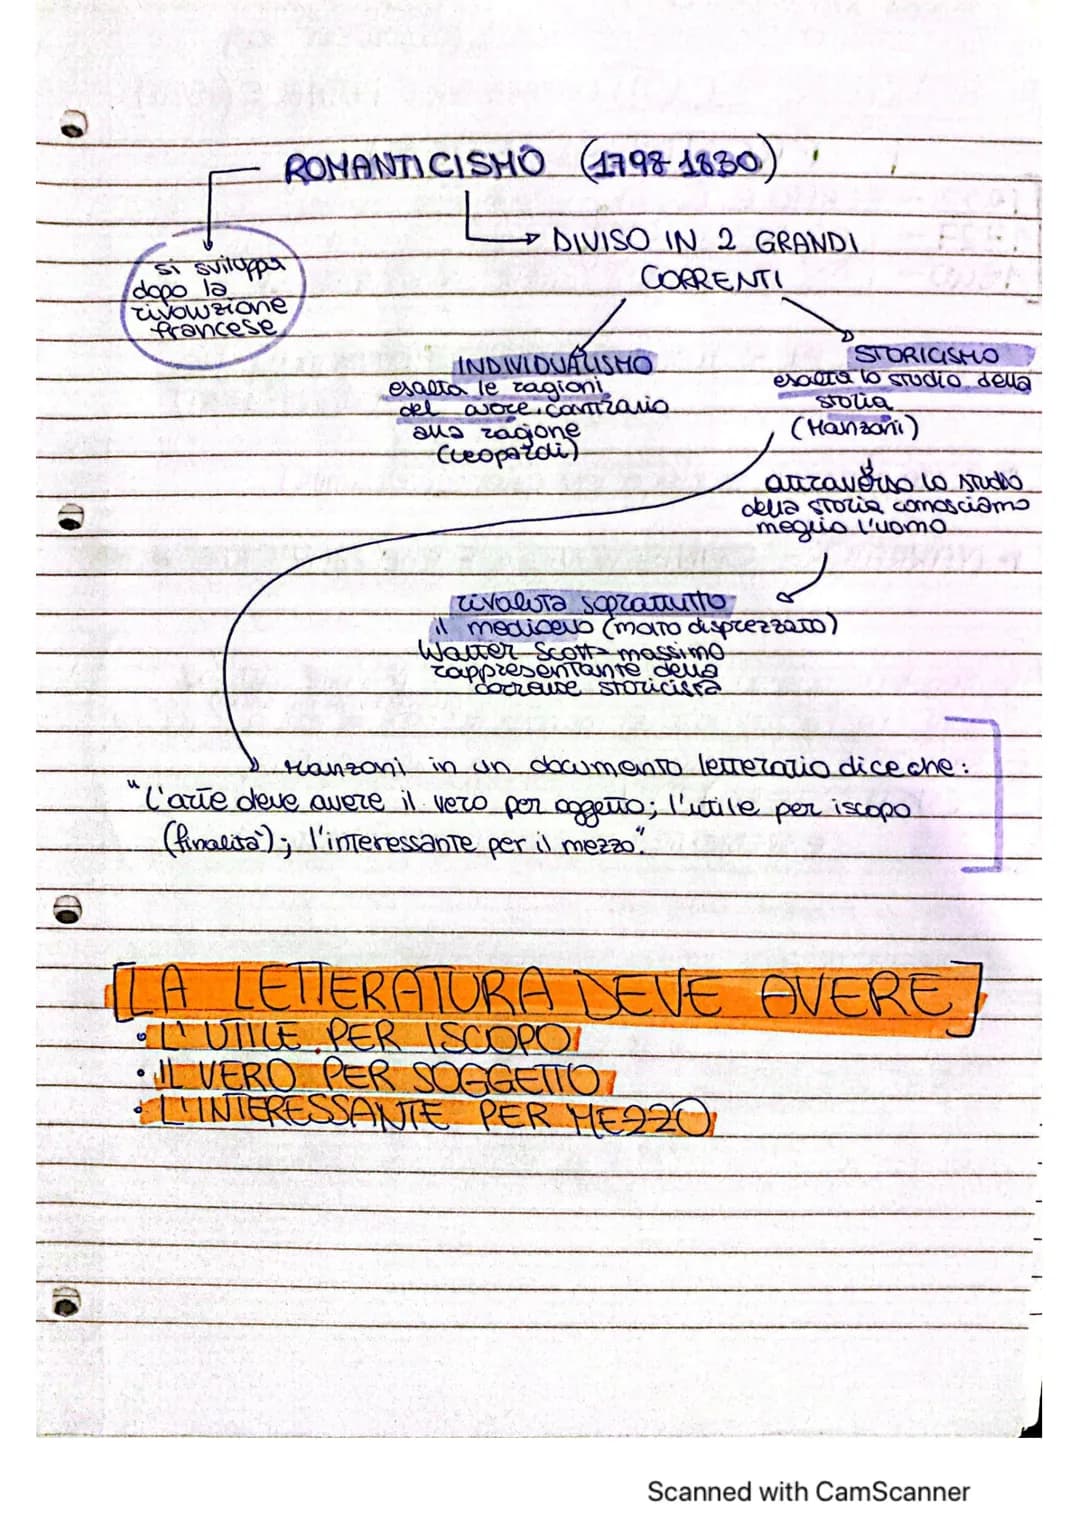 ROMANTICISMO (1798-1830)
si sviluppa
dopo la
rivoluzione
francese
DIVISO IN 2 GRANDI
CORRENTI
INDIVIDUALISMO
esalta le ragioni
del cuore, contrario
alla ragione
(Leopardi)
STORICISMO
esalta lo studio della
storia
(Manzoni)
attraverso lo studio
della storia conosciamo
meglio l'uomo
rivaluta soprattutto
il medioevo (molto disprezzato)
Walter Scott massimo
rappresentante della
corrente storicista
Manzoni in un documento letterario dice che:
"L'arte deve avere il vero per oggetto; l'utile per iscopo
(finalità); l'interessante per il mezzo".
[LA LETTERATURA DEVE AVERE]
• L'UTILE PER ISCOPO
• IL VERO PER SOGGETTO
• L'INTERESSANTE PER MEZZO
Scanned with CamScanner